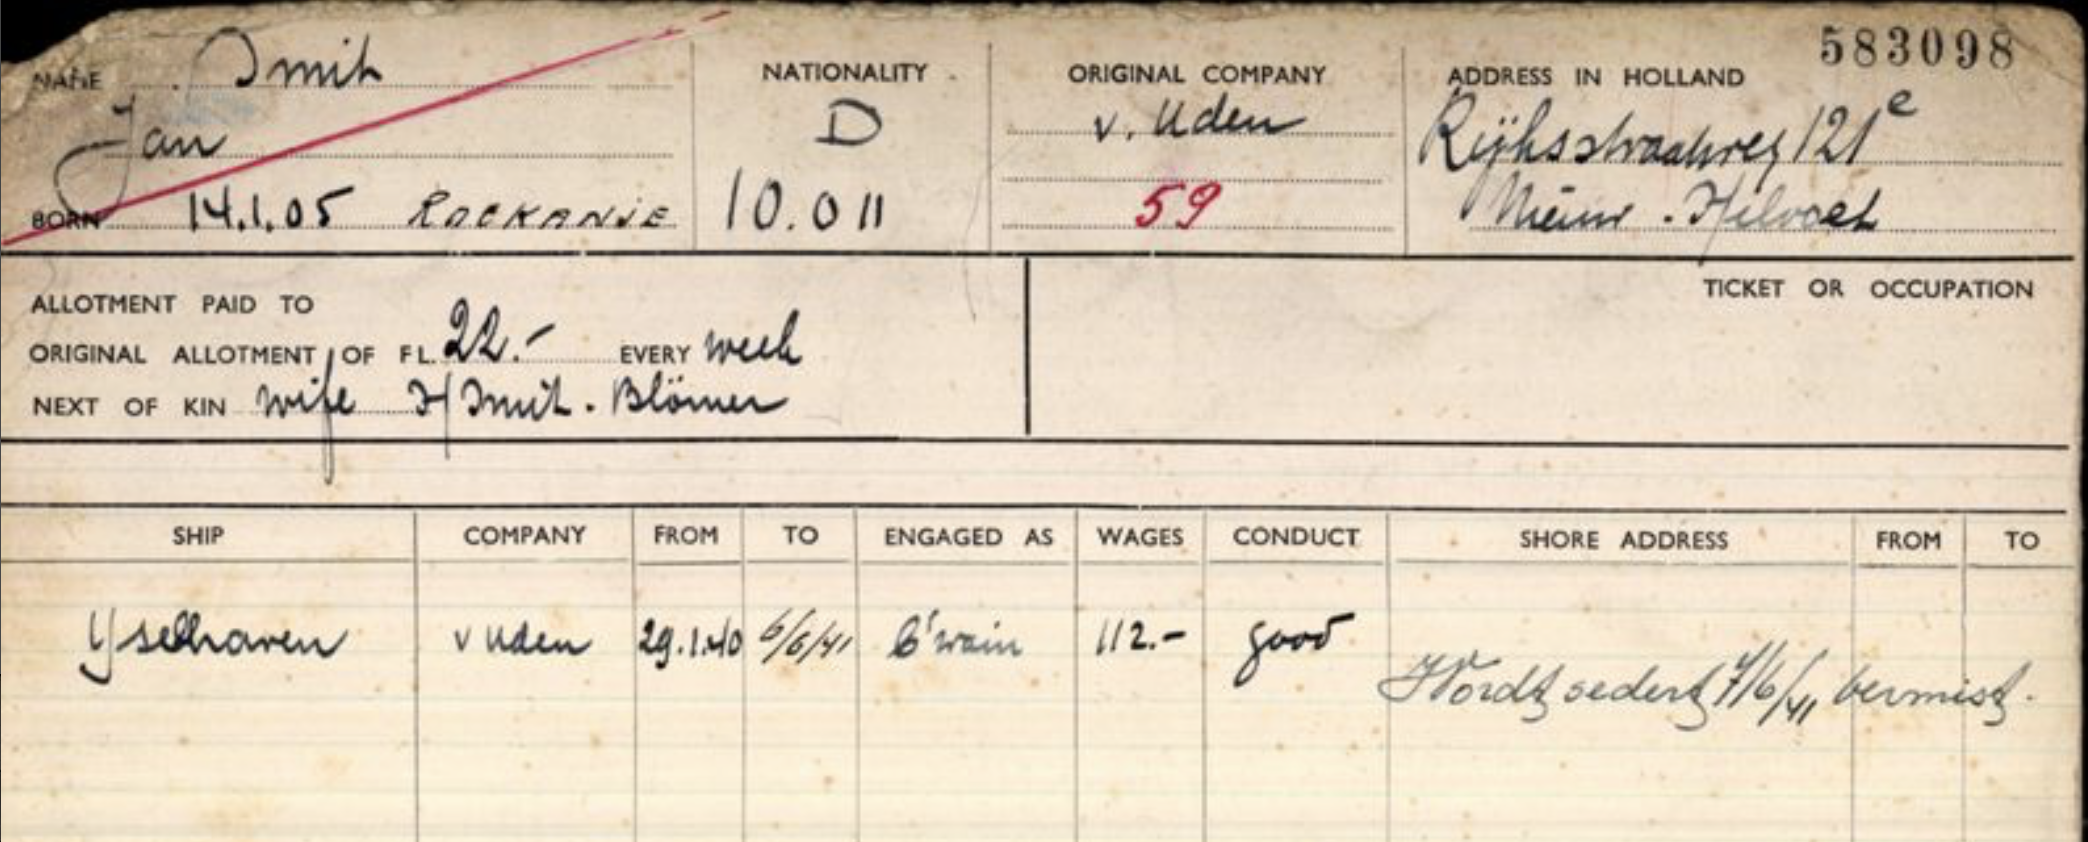 583098
NAME Smit
Jan
BORN 14.1.05 ROCKANJE
NATIONALITY
D
10.011
ORIGINAL COMPANY
v. Uden
59
ADDRESS IN HOLLAND
Rijksstraatweg 121e
Nieuw-Helvoet
ALLOTMENT PAID TO
ORIGINAL ALLOTMENT OF FL. 22.- EVERY week
NEXT OF KIN wife H Smit-Blömer
TICKET OR OCCUPATION
SHIP COMPANY FROM TO ENGAGED AS WAGES CONDUCT SHORE ADDRESS FROM TO
Yselhaven v Uden 29.1.40 6/6/41 B'swain 112.- good
Wordt sedert 7/6/41 vermist.